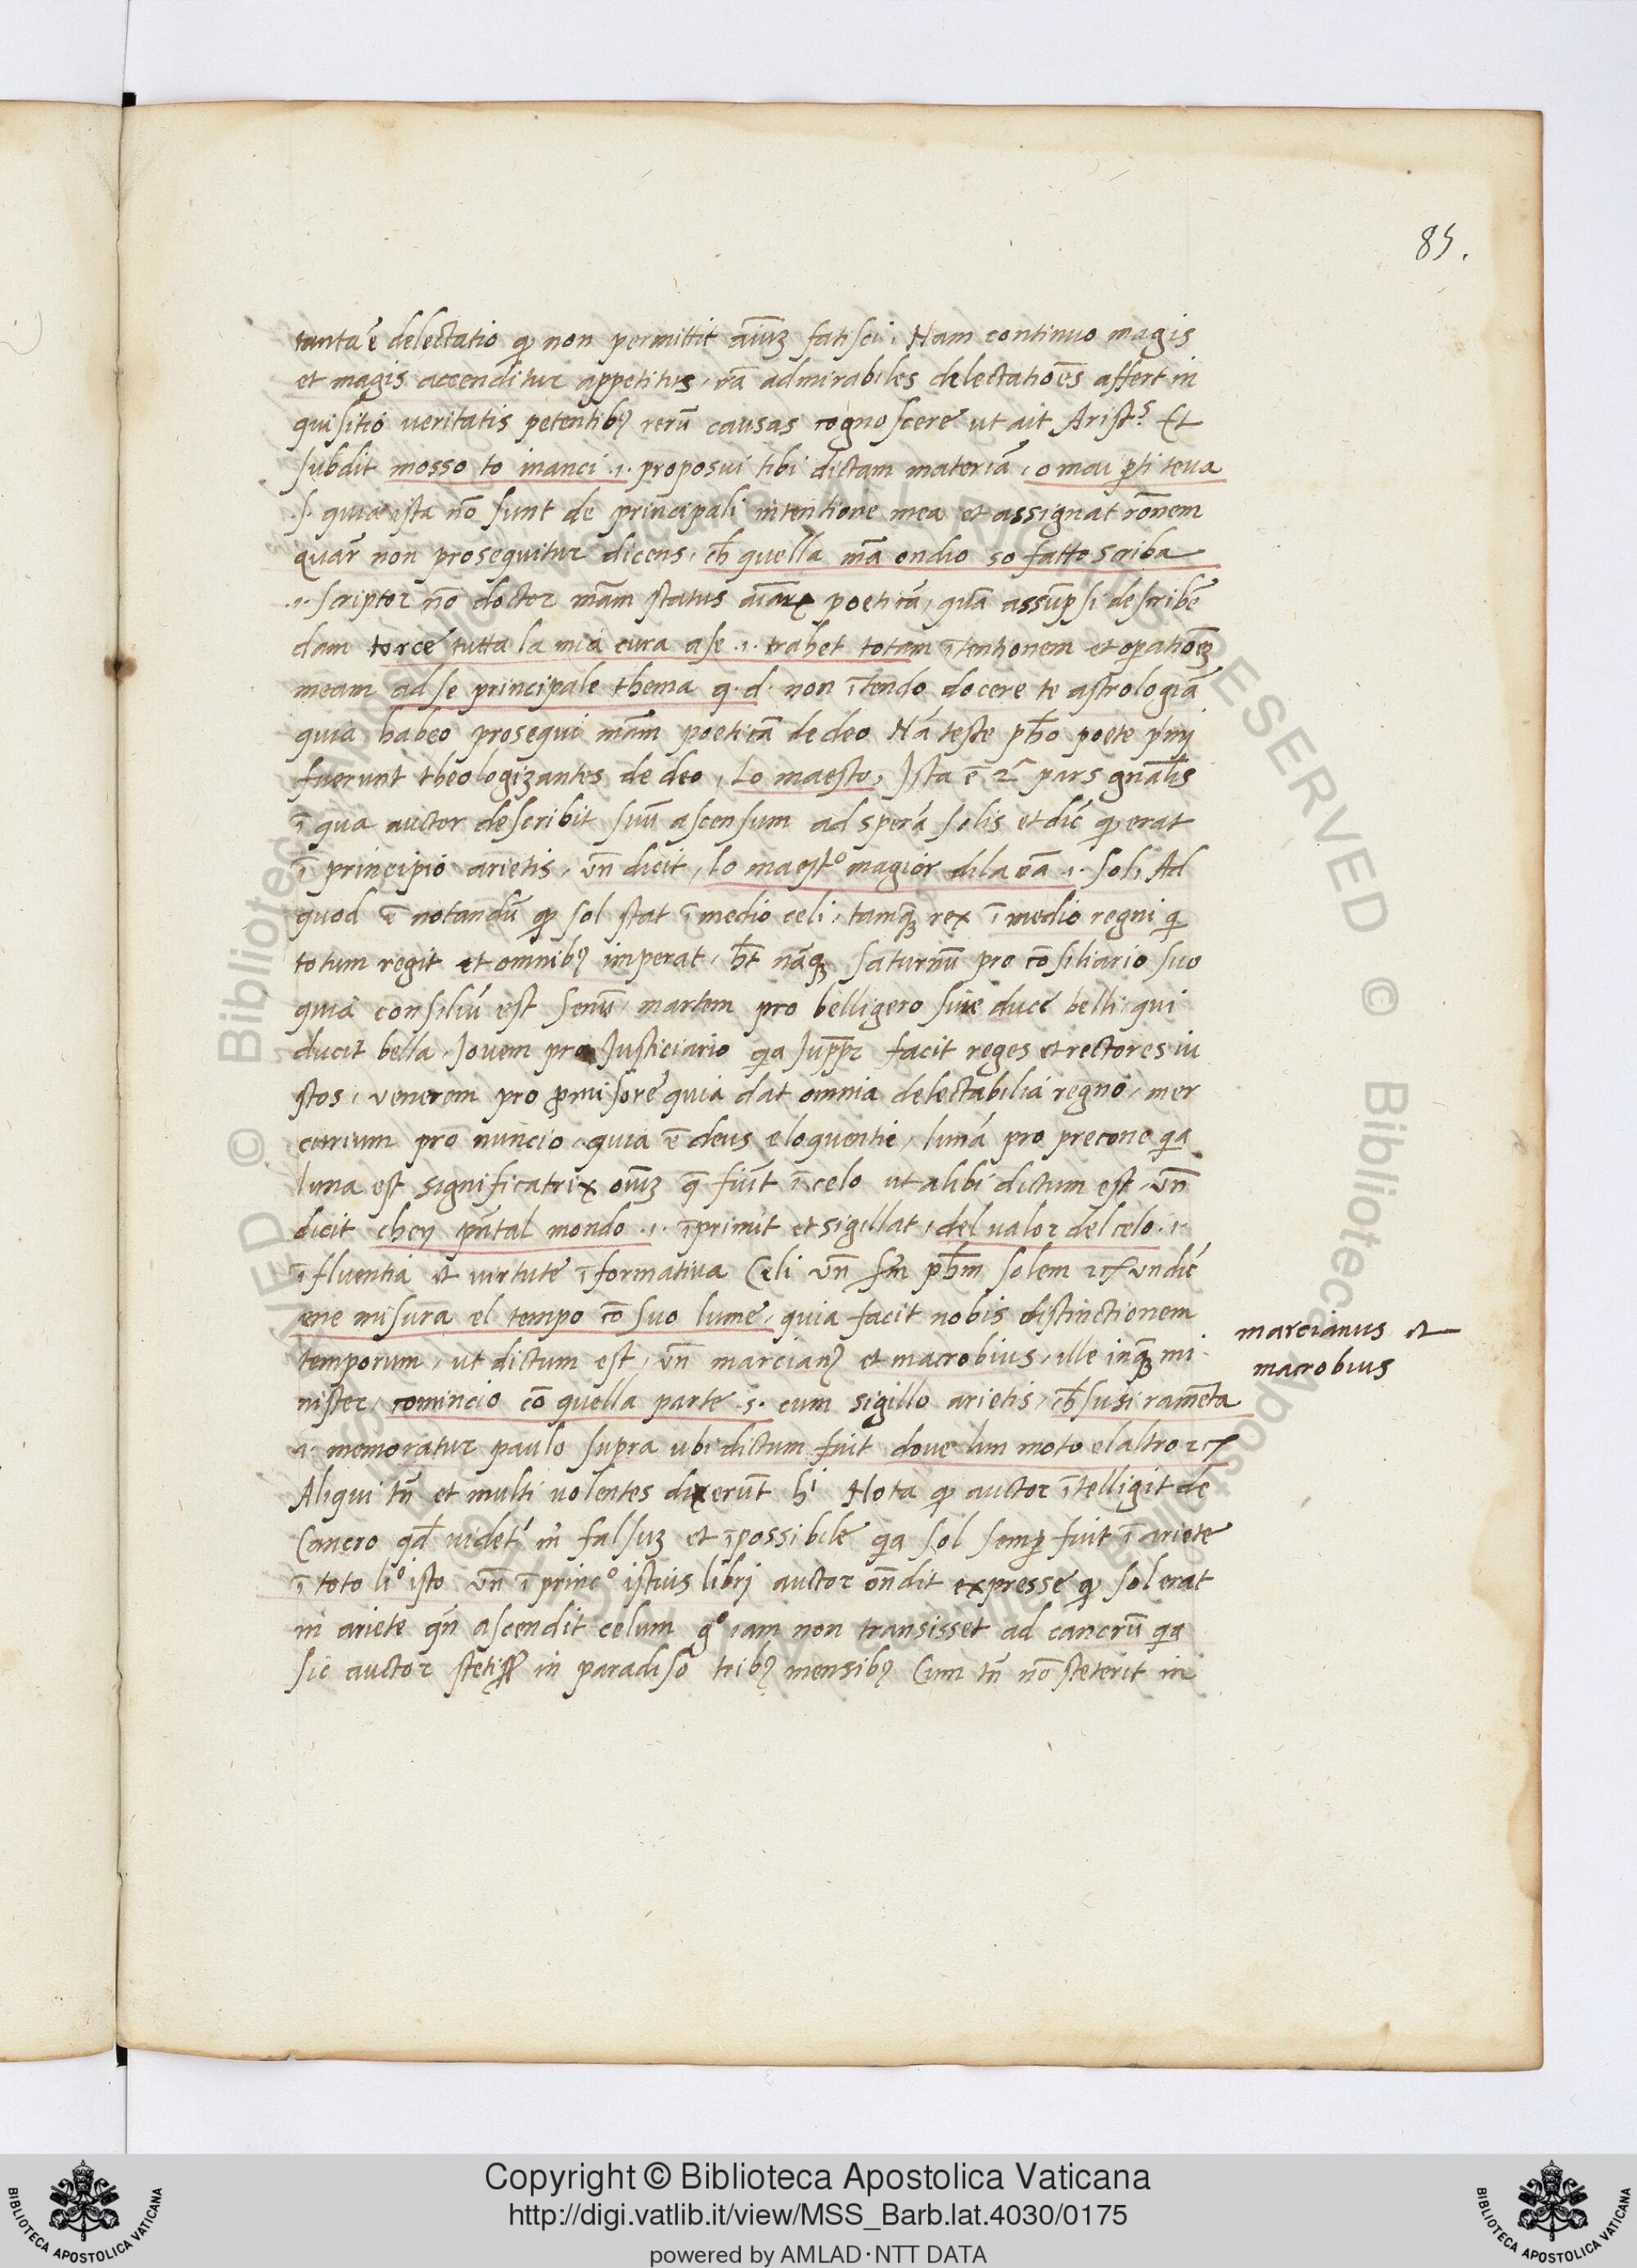 85.
tanta ē delectatio qɜ non permittit aīuȝ fatisci. Nam continuo magis
et magis accenditur appetitus, nā admirabiles delectatiōēs affert in
quisitio veritatis petentibꝫ rerū causas cognoscere ut ait Arist.s Et
subdit mosso to inanci .i. proposui tibi dictam materiā, o mai p̱ ti te va
.s. quia ista nō sunt de principali intentione mea et assignat rōnem
quar̄ non prosequitur dicens, ch̄ quella mā ondio so fatto scriba
.i. scriptor nō doctor mām status aīarꝝ poeticā, quā assūpsi describē
dam torce tutta la mia cura a se .i. trahet totam ītentionem et op̱atiōēȝ
meam ad se principale thema q. d. non ītendo docere te astrologiā
quia habeo prosequi mām poeticā de deo Nā teste ph̄o poete p'mj
fuerunt theologizantes de deo, Lo maesto, Ista ē 2ᵃ pars gnālis
ī qua auctor describit suū ascensum ad sperā solis et dic̄ qɜ erat
ī principio arietis, vn̄ dicit, lo maest.o magior dila nā .i. sol, Ad
quod ē notandū qɜ sol stat ī medio celi, tamqɜ rex ī medio regni q̱
totum regit et omnibꝫ imperat, h̄t nāqɜ saturnū pro cōsiliario suo
quia consiliū est senū, martem pro belligero sive duce belli qui
ducit bella, Jovem pro Justiciario qa Jupp̄r facit reges et rectores iu
stos, venerem pro ꝓvisore quia dat omnia delectabilia regno, mer
curium pro nuncio, quia ē deus eloquentie, lunā pro precone qa
luna est significatrix oīuȝ q̄ fiūt ī celo ut alibi dictum est, vn̄
dicit chey pn̄tal mondo .i. īprimit et sigillat, del valor del celo .i.
īfluentia et virtute īformativa Celi vn̄ sm̄ ph̄m solem ⁊c̄ un dic̄
ene misura el tempo cō suo lume, quia facit nobis distinctionem
temporum, ut dictum est, vn̄ marcianꝫ et macrobius, ille inqɜ mi
nister, comincio cō quella parte .s. cum sigillo arietis, ch̄ susi ramēta
.i. memoratur paulo supra ubi dictum fuit dove lun moto el altro ⁊c̄
Aliqui tn̄ et multi volentes dixerūt hⁱ Nota qɜ auctor ītelligit de
Cancro qd̄ videt' m̄ falsuȝ et īpossibile qa sol semp̱ fuit ī ariete
ī toto li.o isto vn̄ ī princ.o istius librj auctor on̄dit expresse qɜ sol erat
in ariete qn̄ ascendit celum g.o iam non transisset ad cancrū qa
sic auctor stetiss̄ in paradiso tribꝫ mensibꝫ Cum tn̄ nō steterit in
marcianus et
macrobius
Copyright © Biblioteca Apostolica Vaticana
http://digi.vatlib.it/view/MSS_Barb.lat.4030/0175
powered by AMLAD·NTT DATA
BIBLIOTECA APOSTOLICA VATICANA
BIBLIOTECA APOSTOLICA VATICANA